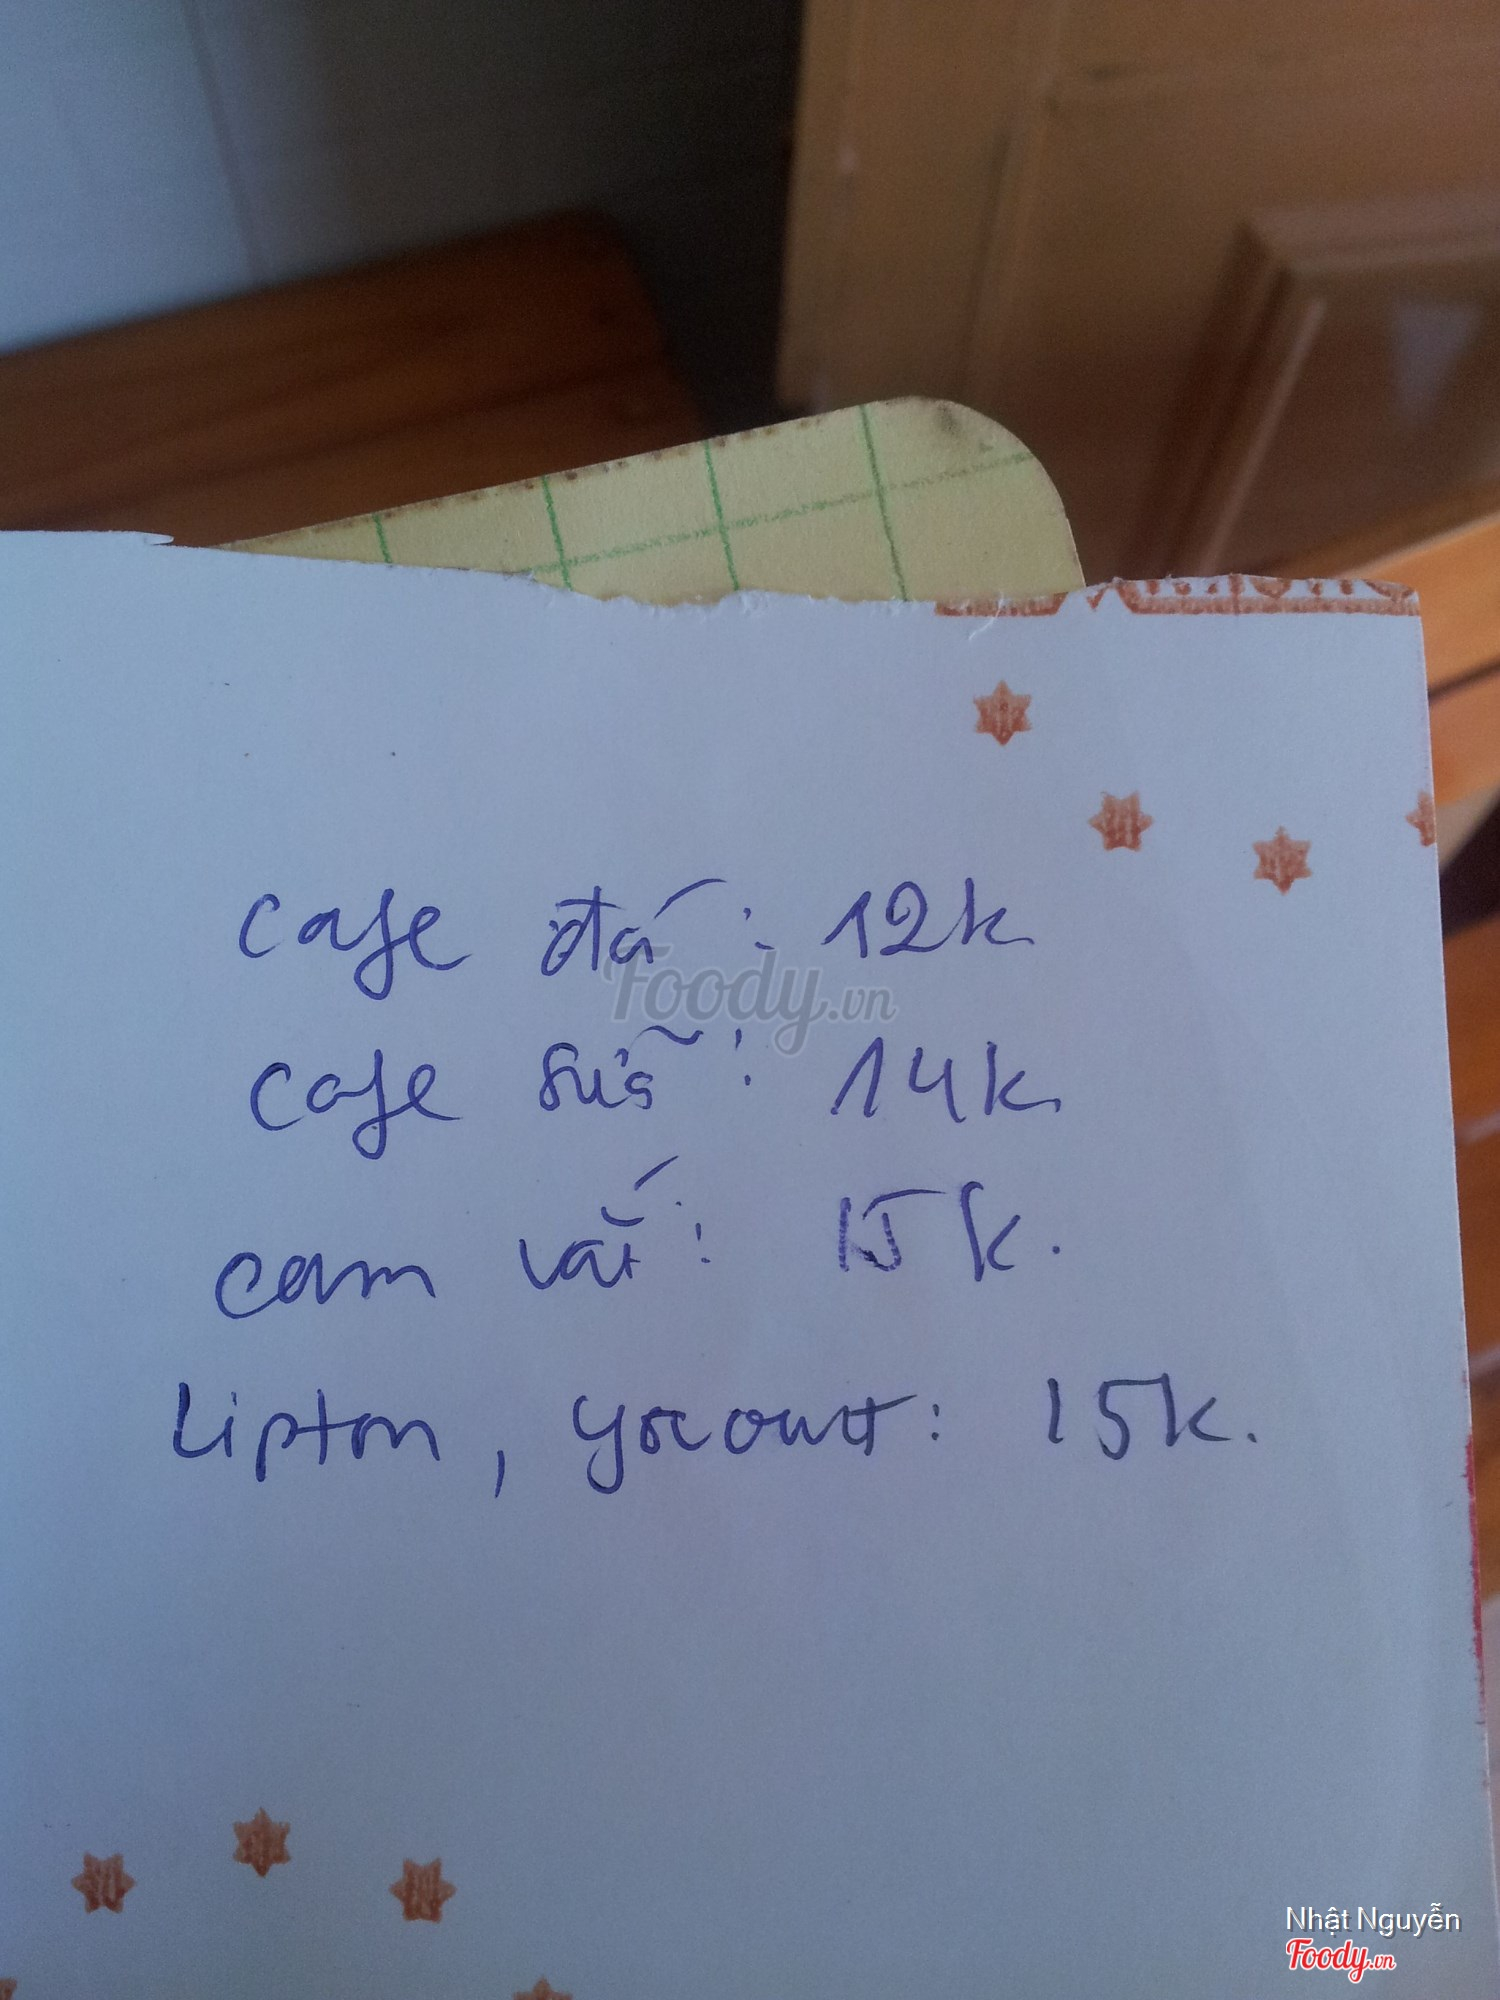 cafe đá: 12k
Foody.vn
cafe sữa: 14k
cam vắt: 15k.
Lipton, yocourt: 15k.
Nhật Nguyễn
Foody.vn